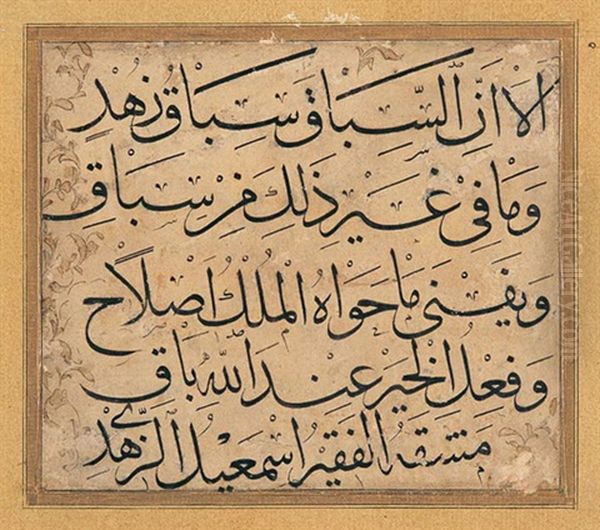 أَلَا إِنَّ السِّبَاقَ سِبَاقُ زُهْدٍ
وَمَا فِي غَيْرِ ذَلِكَ مِنْ سِبَاقِ
وَيَفْنَى مَا حَوَاهُ الْمُلْكُ اصْلَاحْ
وَفِعْلُ الْخَيْرِ عِنْدَ اللهِ بَاقِ
مشقه الفقير اسمعيل الزهدي